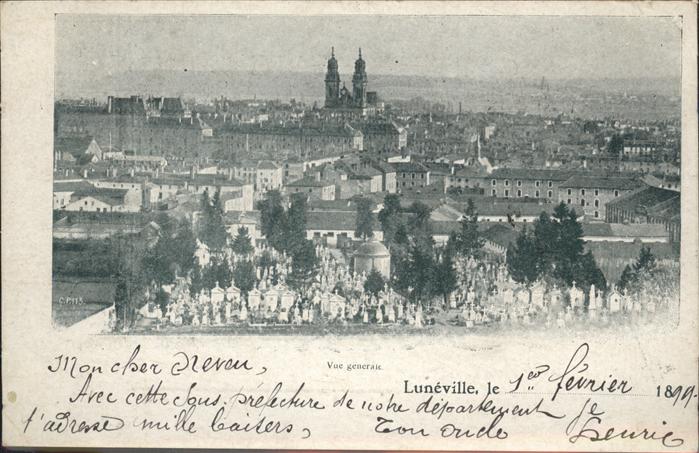 C.P.113.
Mon cher Neveu,
Vue generale
Lunéville, le 1er février 1899.
Avec cette Sous préfecture de notre département je
t'adresse mille baisers, Ton oncle Henric